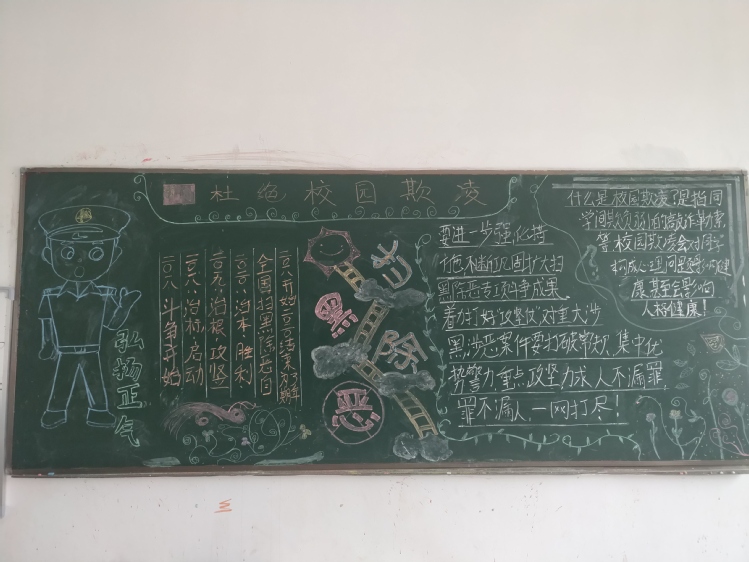 杜绝校园欺凌
弘扬正气
二〇一八开始二〇二〇结束好歹辩
全国扫黑除恶自
二〇二〇治本·胜利
二〇一九·治根·攻坚
二〇一八·治标·启动
二〇一八斗争开始
扫
黑
除
恶
要进一步强化措
施不断巩固扩大扫
黑除恶专项斗争成果。
着力打好'攻坚仗'对重大涉
黑涉恶案件要打破常规、集中优
势警力重点攻坚力求人不漏罪
罪不漏人、一网打尽!
什么是校园欺凌?是指同
学间欺负弱小的
等、校园欺凌会对同学
康甚至会影响
人格健康!